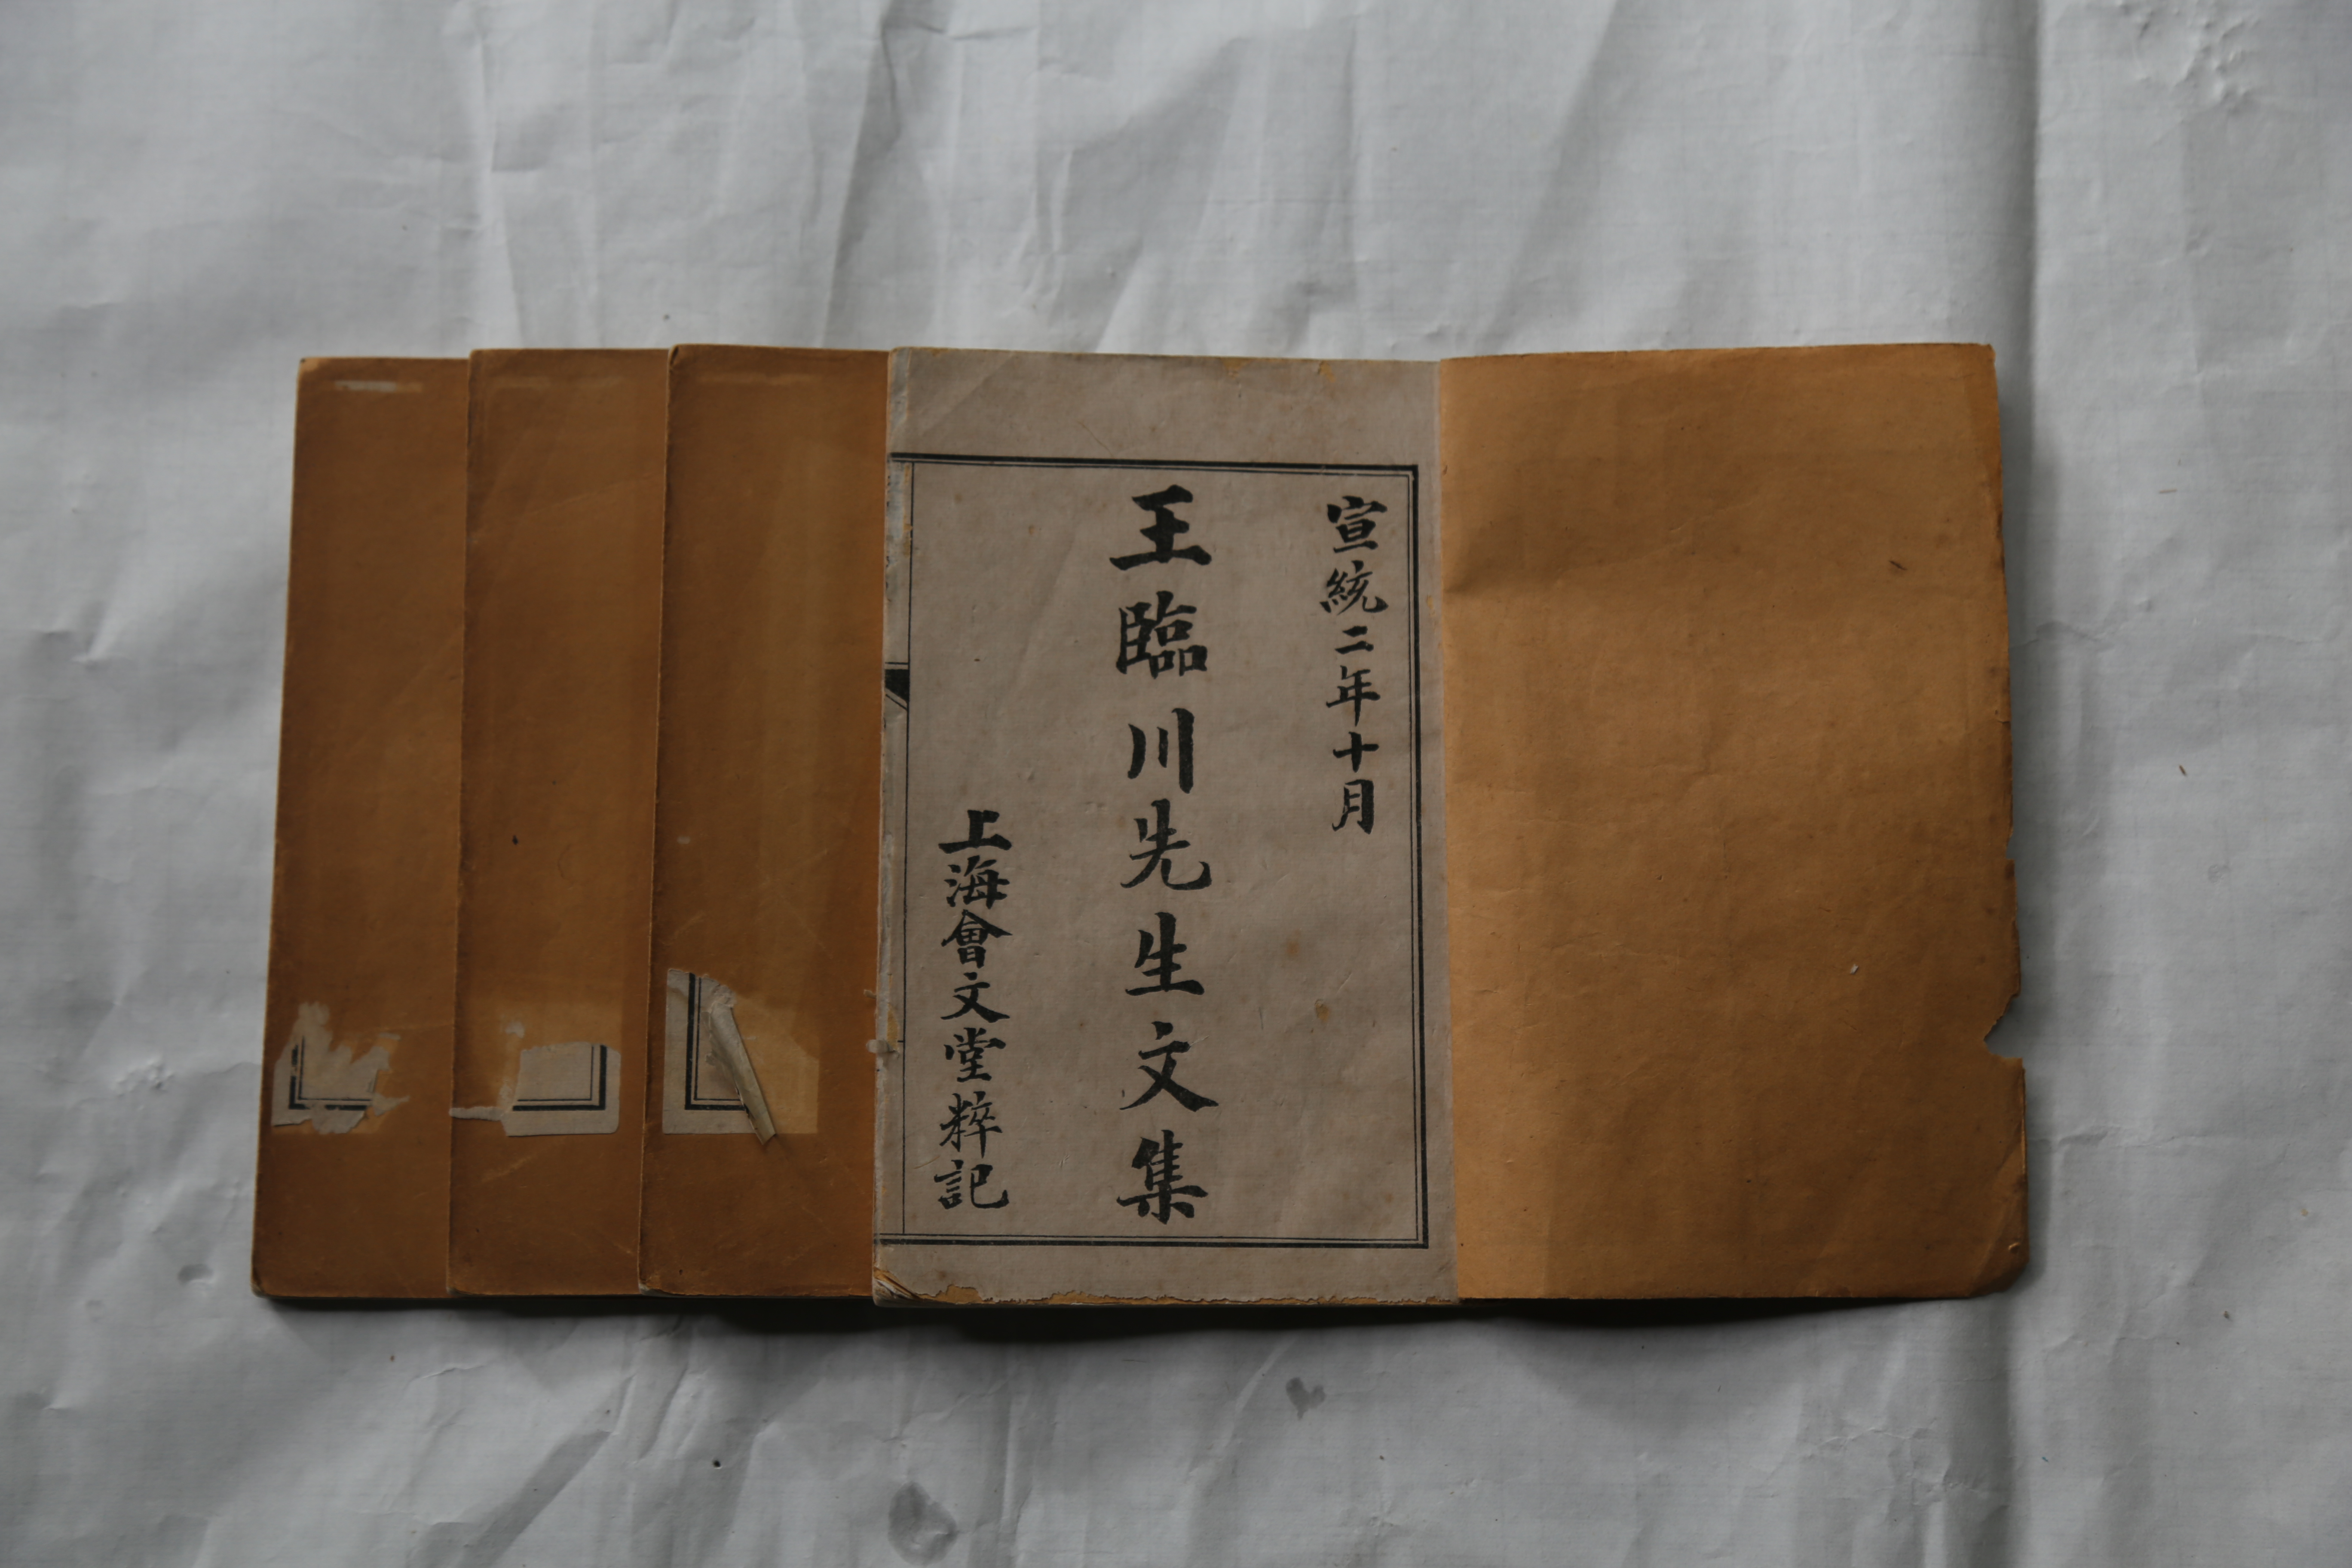 宣統二年十月
王臨川先生文集
上海會文堂粹記